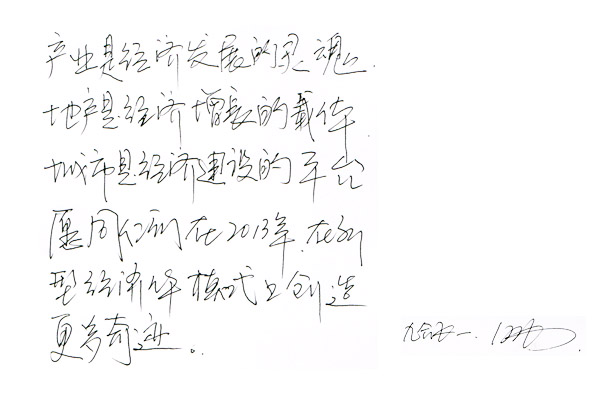 产业是经济发展的灵魂
地产是经济增长的载体
城市是经济建设的平台
愿同仁们在2013年,在新
型经济体模式上创造
更多奇迹。